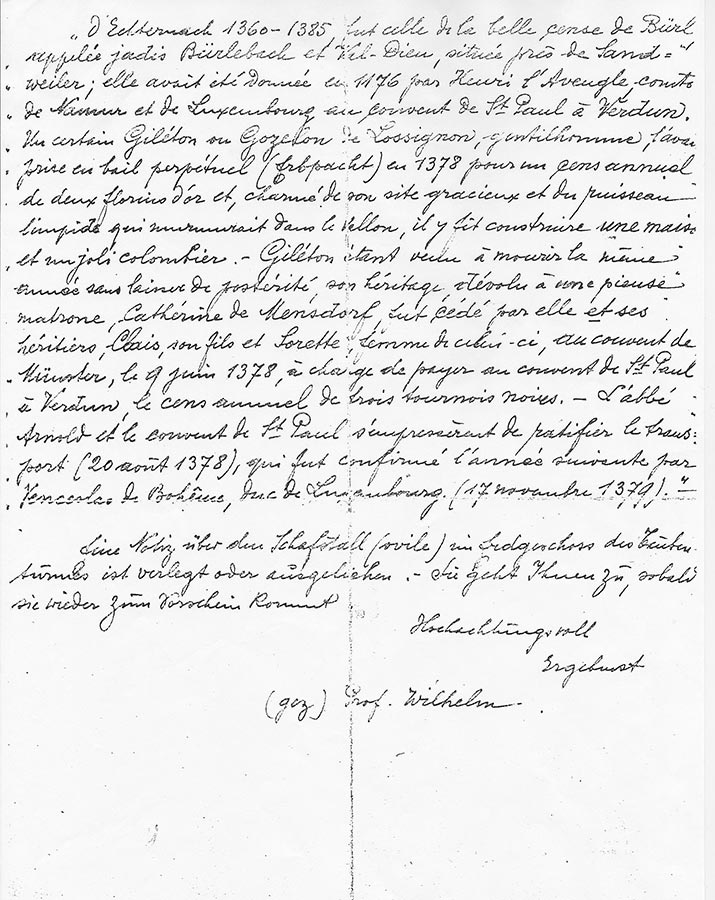 „ d'Echternach 1360-1385, fut celle de la belle cense de Bürl
„ appelée jadis Bürlebach et Val-Dieu, située près de Sand= "
„ weiler; elle avait été donnée en 1176 par Henri l'Aveugle, comte
„ de Namur et de Luxembourg au couvent de St Paul à Verdun.
„ Un certain Giléton ou Gozeton de Lossignon, gentilhomme, l'avai
„ prise en bail perpétuel (Erbpacht) en 1378 pour un cens annuel
„ de deux florins d'or et, charmé de son site gracieux et du ruisseau
„ limpide qui murmurait dans le vallon, il y fit construire une mais
„ et un joli colombier. - Giléton étant venu à mourir la même
„ année sans laisser de postérité, son héritage dévolu à une pieuse
„ matrone, Cathérine de Mensdorf, fut cédé par elle et ses
„ héritiers, Clais, son fils et Sorette, femme de celui-ci, au couvent de
„ Münster, le 9 juin 1378, à charge de payer au couvent de St Paul
„ à Verdun, le cens annuel de trois tournois noirs. - L'abbé
„ Arnold et le couvent de St Paul s'empressèrent de ratifier le trans=
„ port (20 août 1378), qui fut confirmé l'année suivante par
„ Venceslas de Bohême, duc de Luxembourg. (17 novembre 1379). "
Eine Notiz über den Schafstall (ovile) im Erdgeschoss des
turmes ist verlegt oder ausgeliehen. - Sie geht Ihnen zu, sobald
sie wieder zum Vorschein kommt
Hochachtungsvoll
Ergebenst
(gez) Prof. Wilhelm.